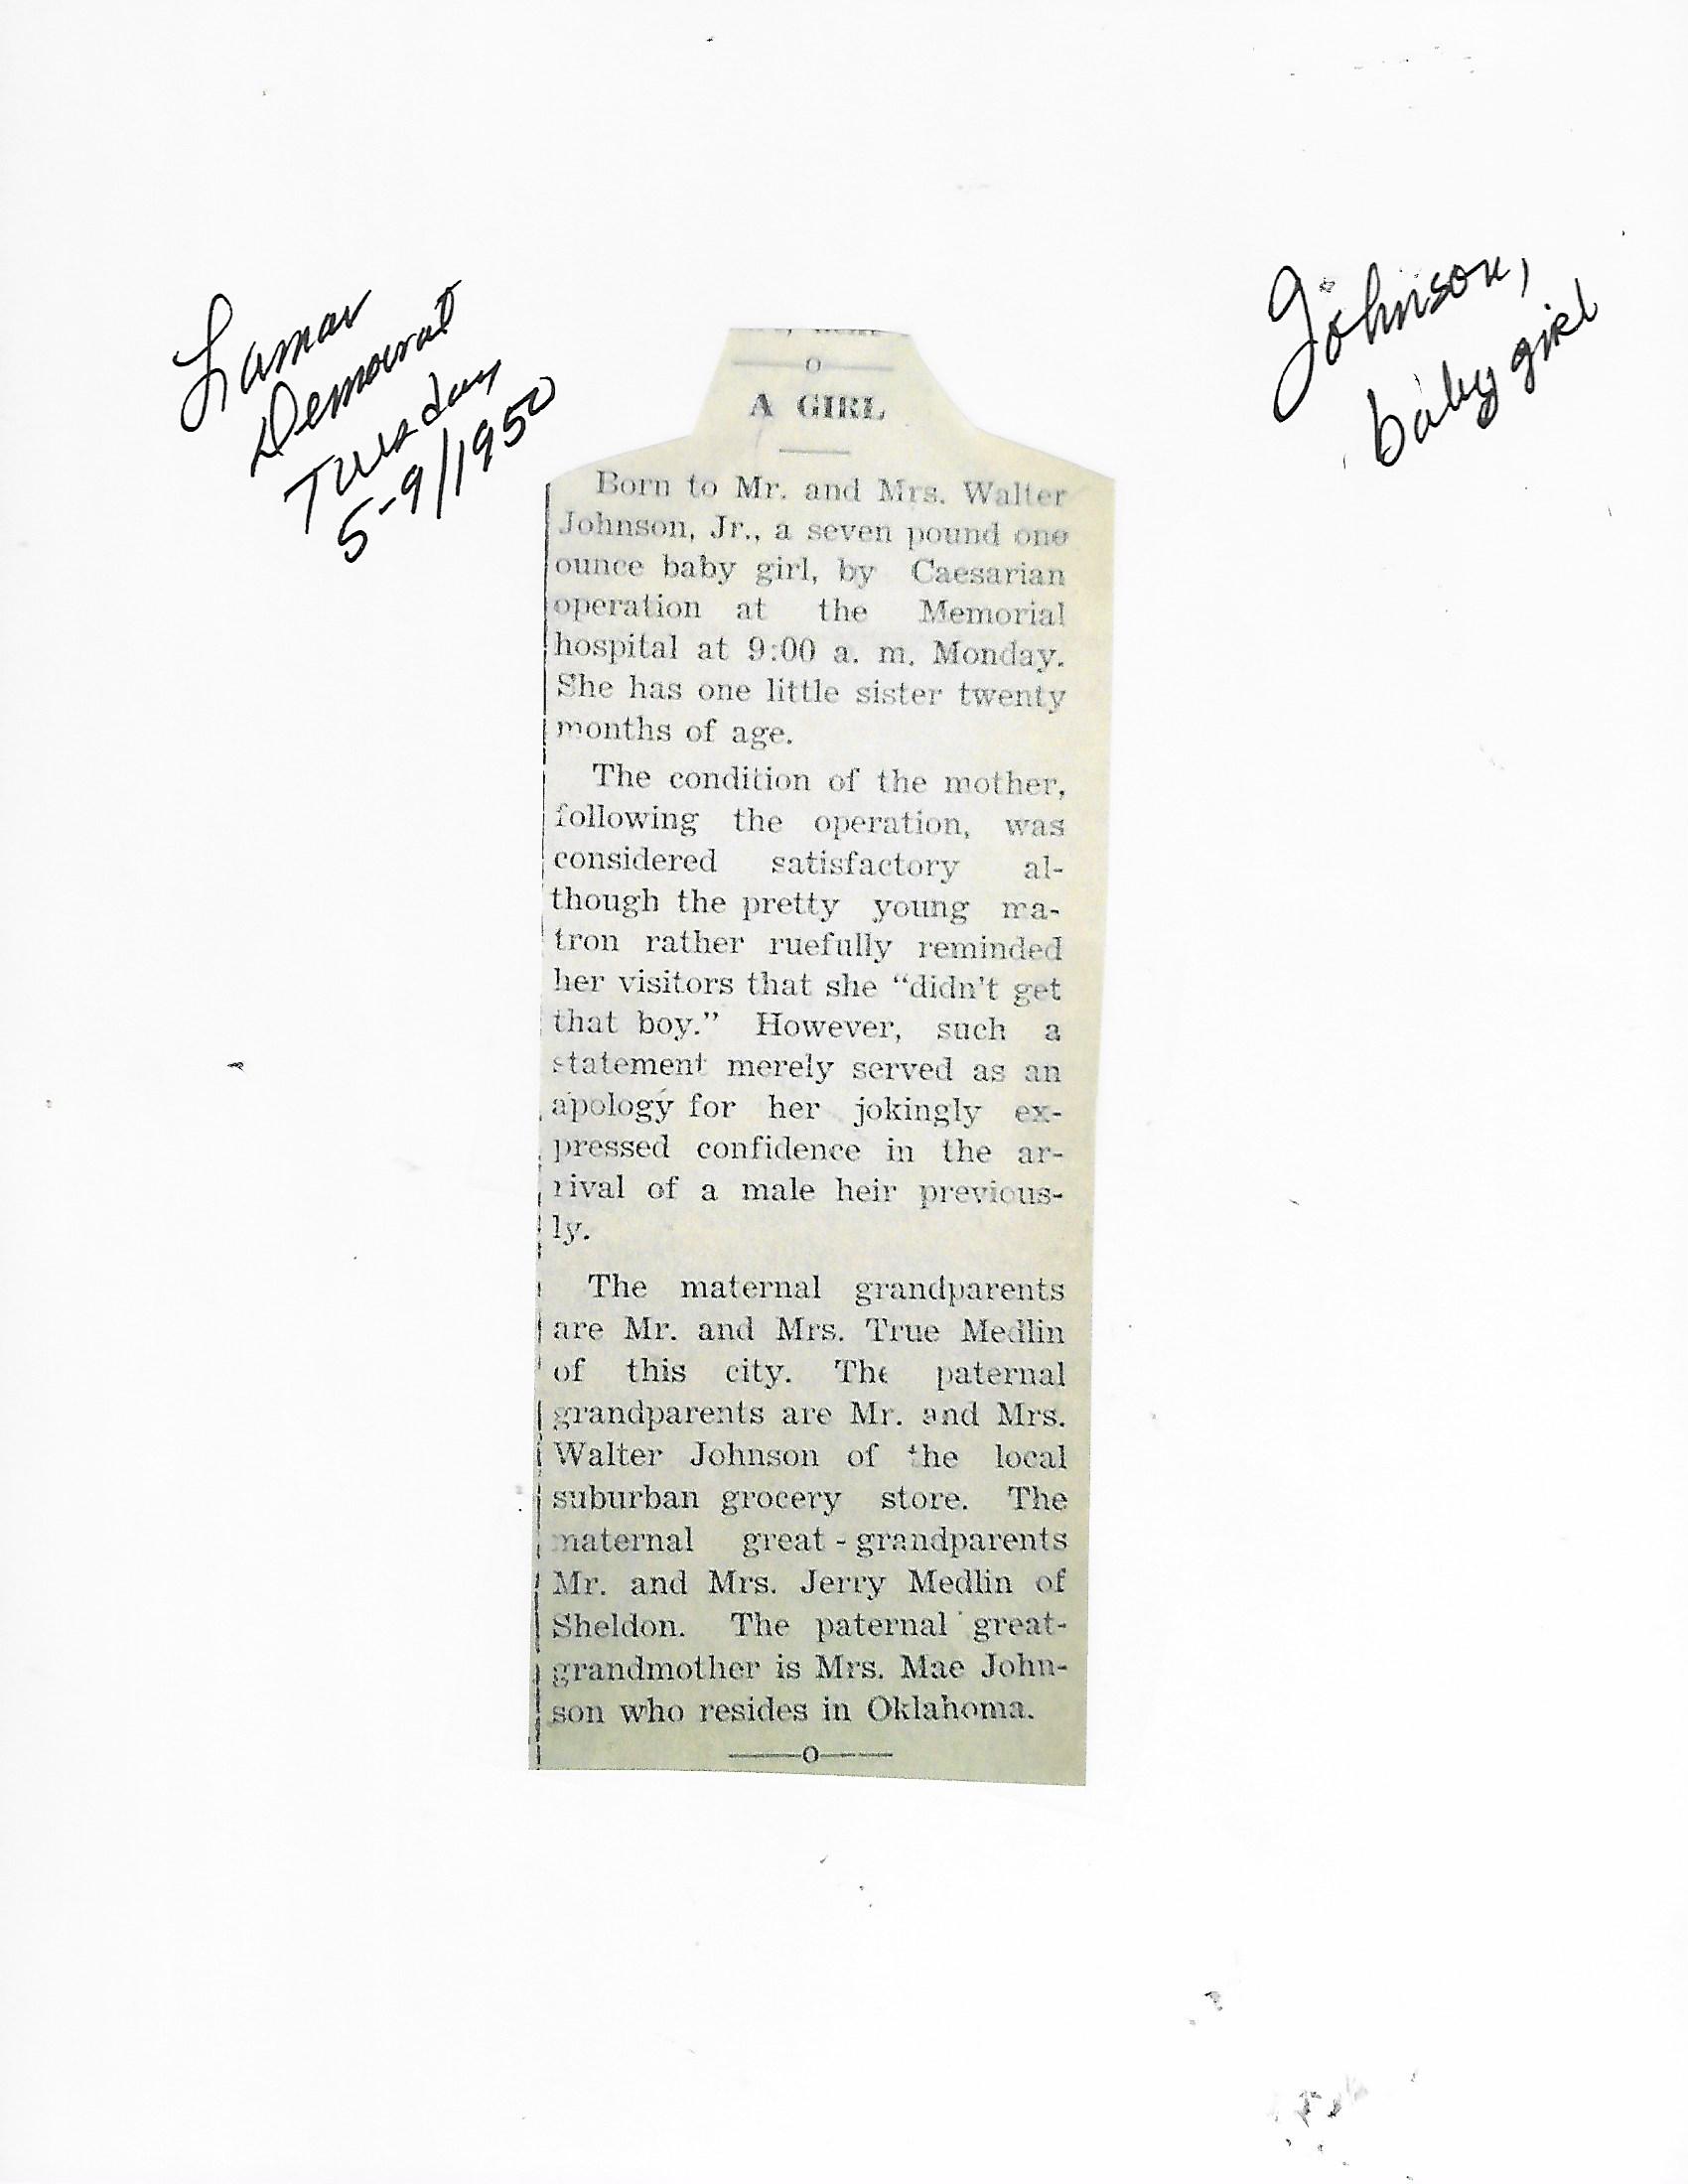 Lamar
Democrat
Tuesday
5-9/1950
Johnson,
baby girl
o
A GIRL
Born to Mr. and Mrs. Walter
Johnson, Jr., a seven pound one
ounce baby girl, by Caesarian
operation at the Memorial
hospital at 9:00 a. m. Monday.
She has one little sister twenty
months of age.
The condition of the mother,
following the operation, was
considered satisfactory al-
though the pretty young ma-
tron rather ruefully reminded
her visitors that she “didn’t get
that boy.” However, such a
statement merely served as an
apology for her jokingly ex-
pressed confidence in the ar-
rival of a male heir previous-
ly.
The maternal grandparents
are Mr. and Mrs. True Medlin
of this city. The paternal
grandparents are Mr. and Mrs.
Walter Johnson of the local
suburban grocery store. The
maternal great-grandparents
Mr. and Mrs. Jerry Medlin of
Sheldon. The paternal great-
grandmother is Mrs. Mae John-
son who resides in Oklahoma.
o